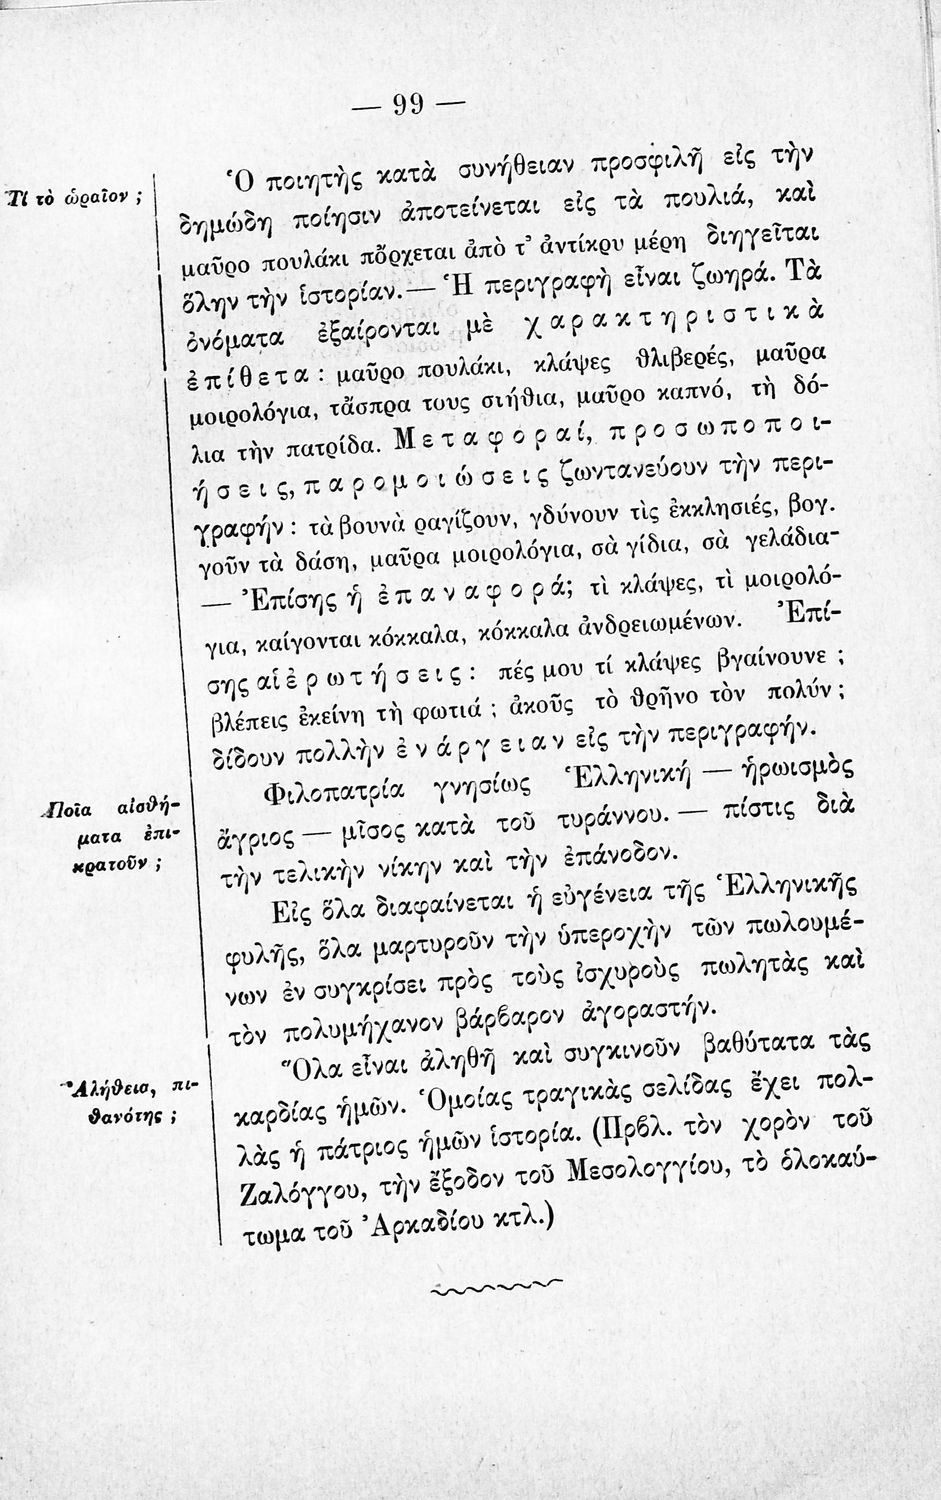 — 99 —
Τί τὸ ὡραῖον ;
Ὁ ποιητὴς κατὰ συνήθειαν προσφιλῆ εἰς τὴν
δημώδη ποίησιν ἀποτείνεται εἰς τὰ πουλιά, καὶ
μαῦρο πουλάκι πὄρχεται ἀπὸ τ’ ἀντίκρυ μέρη διηγεῖται
ὅλην τὴν ἱστορίαν.— Ἡ περιγραφὴ εἶναι ζωηρά. Τὰ
ὀνόματα ἐξαίρονται μὲ χαρακτηριστικὰ
ἐπίθετα : μαῦρο πουλάκι, κλάψες θλιβερές, μαῦρα
μοιρολόγια, τἄσπρα τους στήθια, μαῦρο καπνό, τὴ δό-
λια τὴν πατρίδα. Μεταφοραί, προσωποποι-
ήσεις, παρομοιώσεις ζωντανεύουν τὴν περι-
γραφήν : τὰ βουνὰ ραγίζουν, γδύνουν τὶς ἐκκλησιές, βογ.
γοῦν τὰ δάση, μαῦρα μοιρολόγια, σὰ γίδια, σὰ γελάδια-
— Ἐπίσης ἡ ἐπαναφορά; τὶ κλάψες, τὶ μοιρολό-
για, καίγονται κόκκαλα, κόκκαλα ἀνδρειωμένων. Ἐπί-
σης αἱ ἐρωτήσεις : πές μου τί κλάψες βγαίνουνε ;
βλέπεις ἐκείνη τὴ φωτιά ; ἀκοῦς τὸ θρῆνο τὸν πολύν ;
δίδουν πολλὴν ἐνάργειαν εἰς τὴν περιγραφήν.
Ποῖα αἰσθή-
ματα ἐπι-
κρατοῦν ;
Φιλοπατρία γνησίως Ἑλληνική — ἡρωισμὸς
ἄγριος — μῖσος κατὰ τοῦ τυράννου. — πίστις διὰ
τὴν τελικὴν νίκην καὶ τὴν ἐπάνοδον.
Εἰς ὅλα διαφαίνεται ἡ εὐγένεια τῆς Ἑλληνικῆς
φυλῆς, ὅλα μαρτυροῦν τὴν ὑπεροχὴν τῶν πωλουμέ-
νων ἐν συγκρίσει πρὸς τοὺς ἰσχυροὺς πωλητὰς καὶ
τὸν πολυμήχανον βάρβαρον ἀγοραστήν.
Ἀλήθεια, πι-
θανότης ;
Ὅλα εἶναι ἀληθῆ καὶ συγκινοῦν βαθύτατα τὰς
καρδίας ἡμῶν. Ὁμοίας τραγικὰς σελίδας ἔχει πολ-
λὰς ἡ πάτριος ἡμῶν ἱστορία. (Πρβλ. τὸν χορὸν τοῦ
Ζαλόγγου, τὴν ἔξοδον τοῦ Μεσολογγίου, τὸ ὁλοκαύ-
τωμα τοῦ Ἀρκαδίου κτλ.)